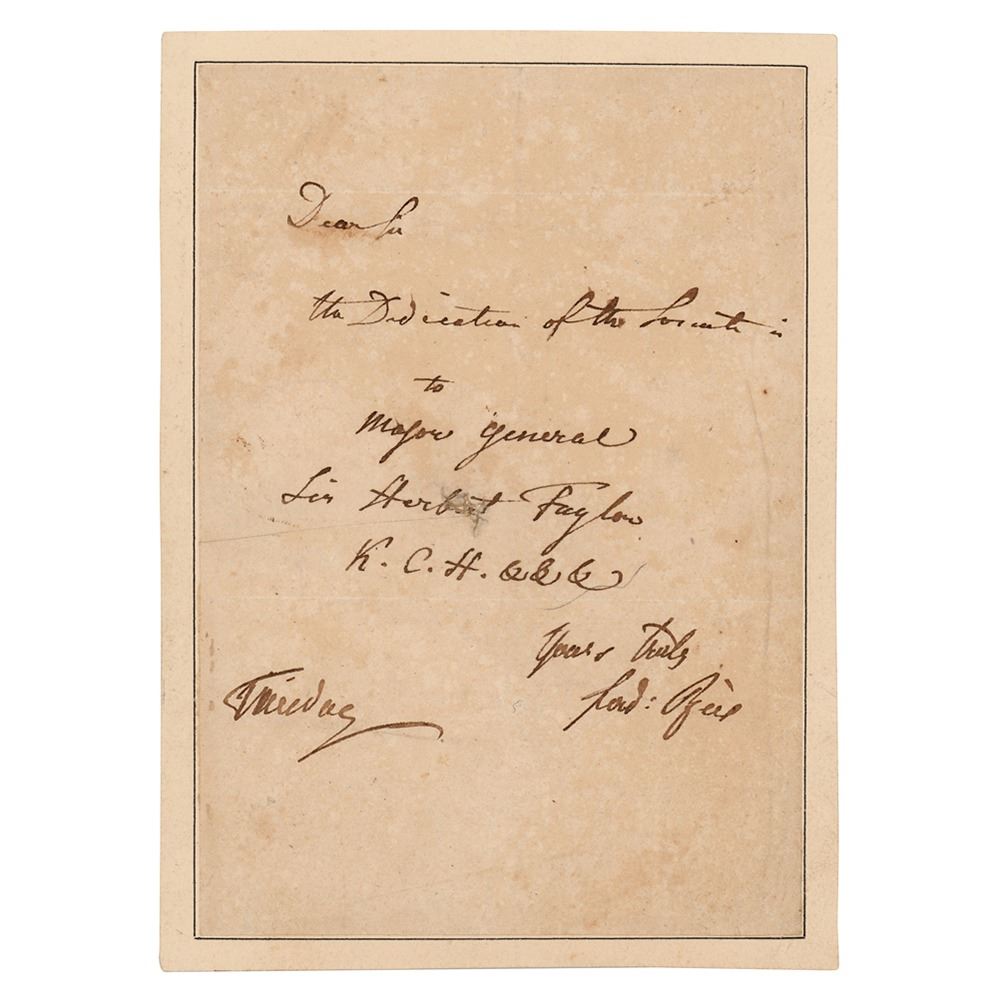 Dear Sir
the Dedication of the Sonate is
to
Major General
Sir Herbert Taylor
K. C. H. &&&
Yours truly
ferd: Ries
Tuesday